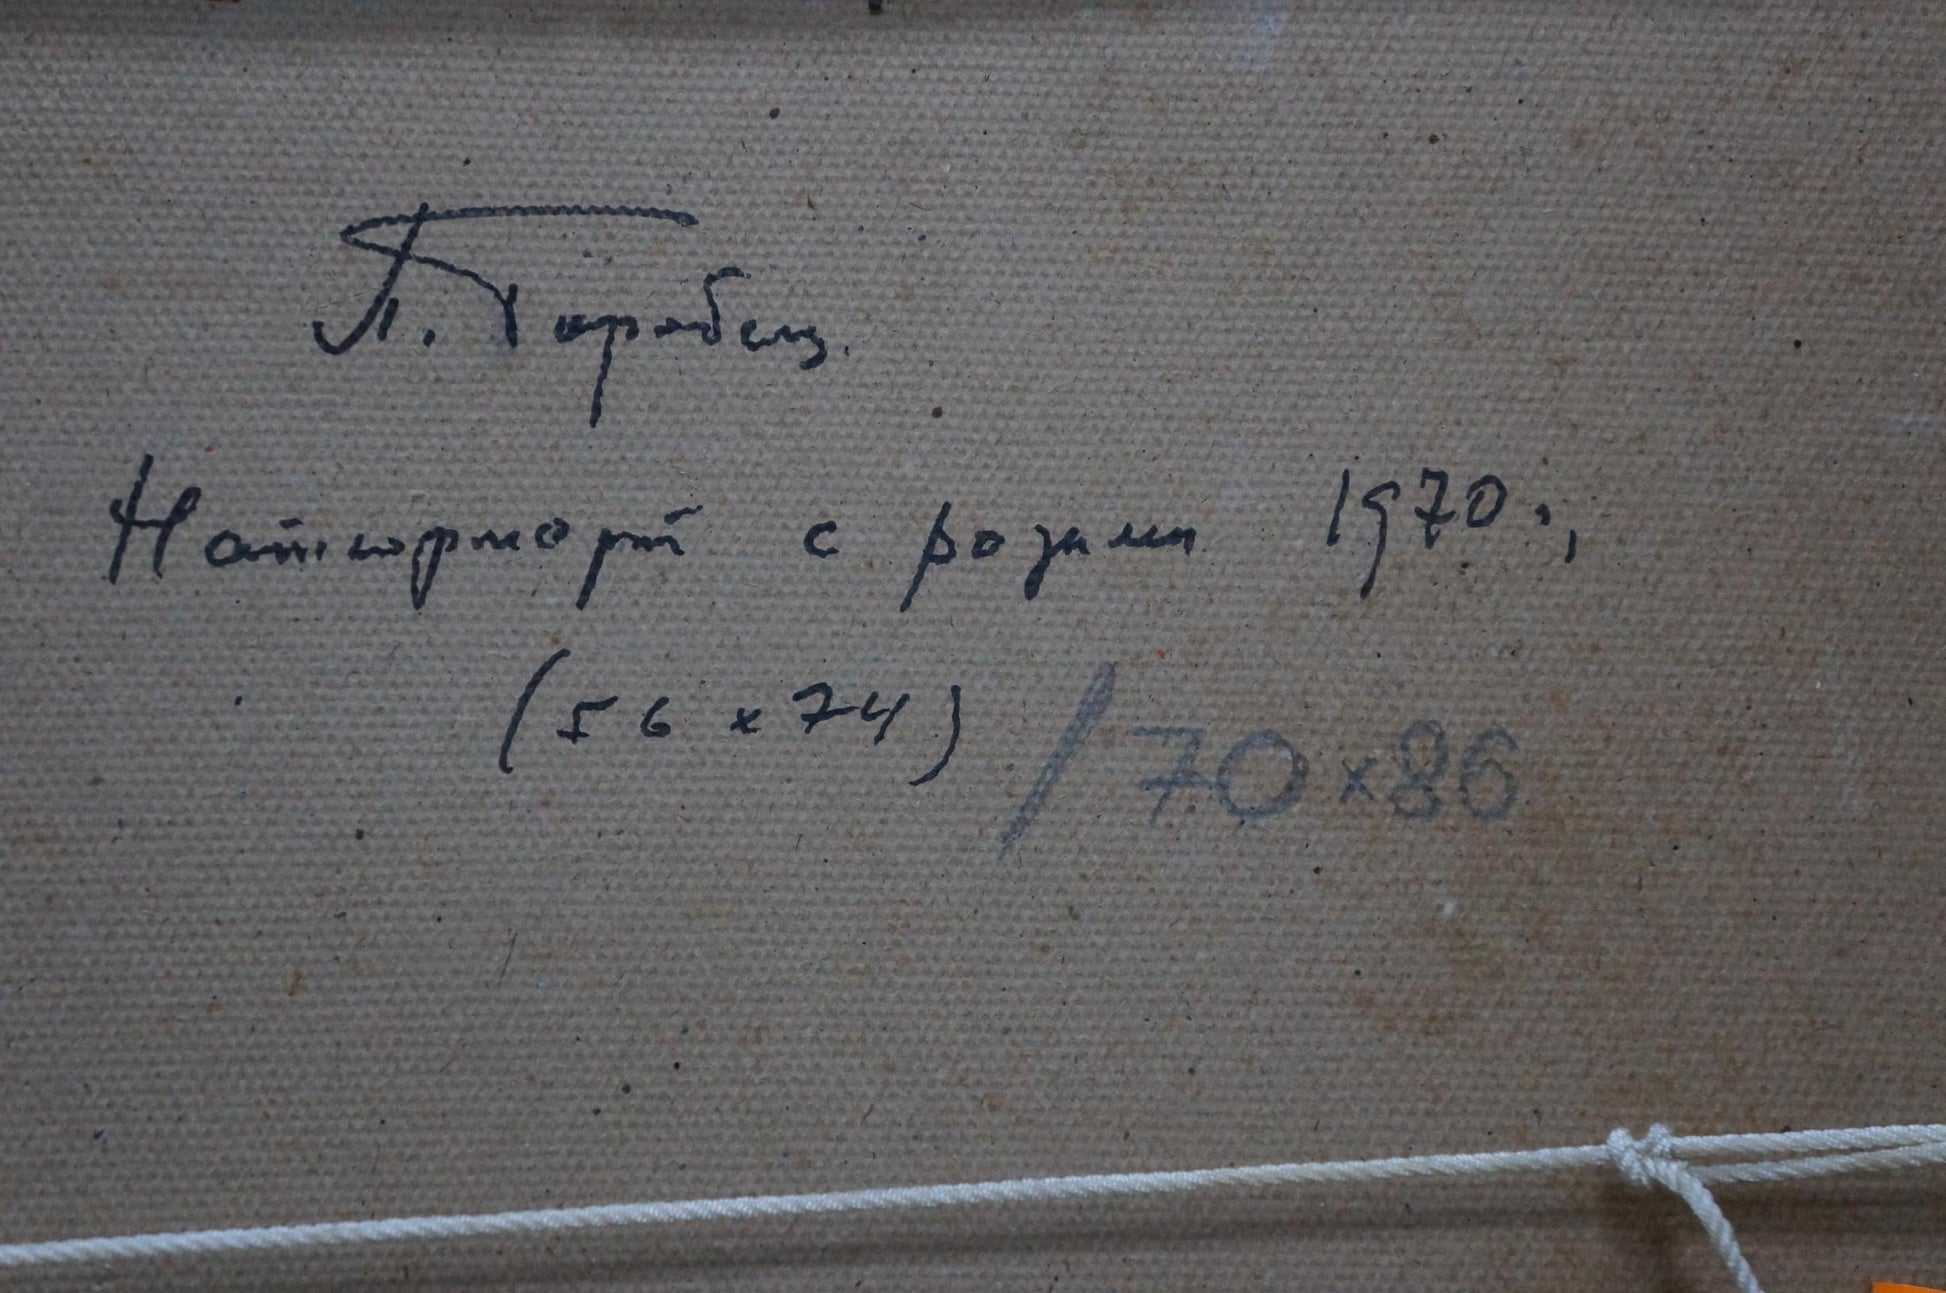 П. Горобец.
Натюрморт с розами 1970.,
(56 x 74) / 70 x 86